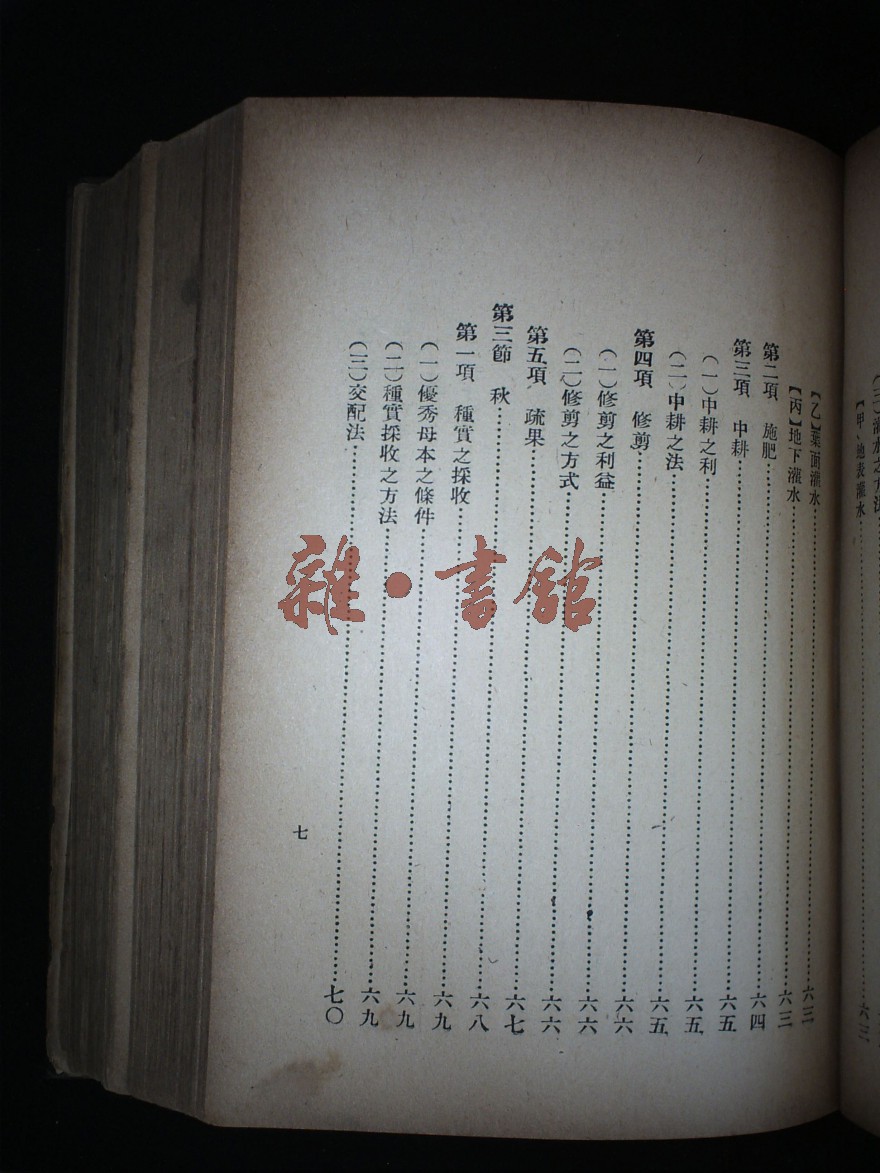 (三)灌水之方法
【甲】地表灌水……六三
【乙】葉面灌水……六三
【丙】地下灌水……六三
第二項 施肥……六四
第三項 中耕……六五
(一)中耕之利……六五
(二)中耕之法……六五
第四項 修剪……六六
(一)修剪之利益……六六
(二)修剪之方式……六六
第五項 疏果……六七
第三節 秋……六八
第一項 種實之採收……六九
(一)優秀母本之條件……六九
(二)種實採收之方法……六九
(三)交配法……七〇
七
雜·書館